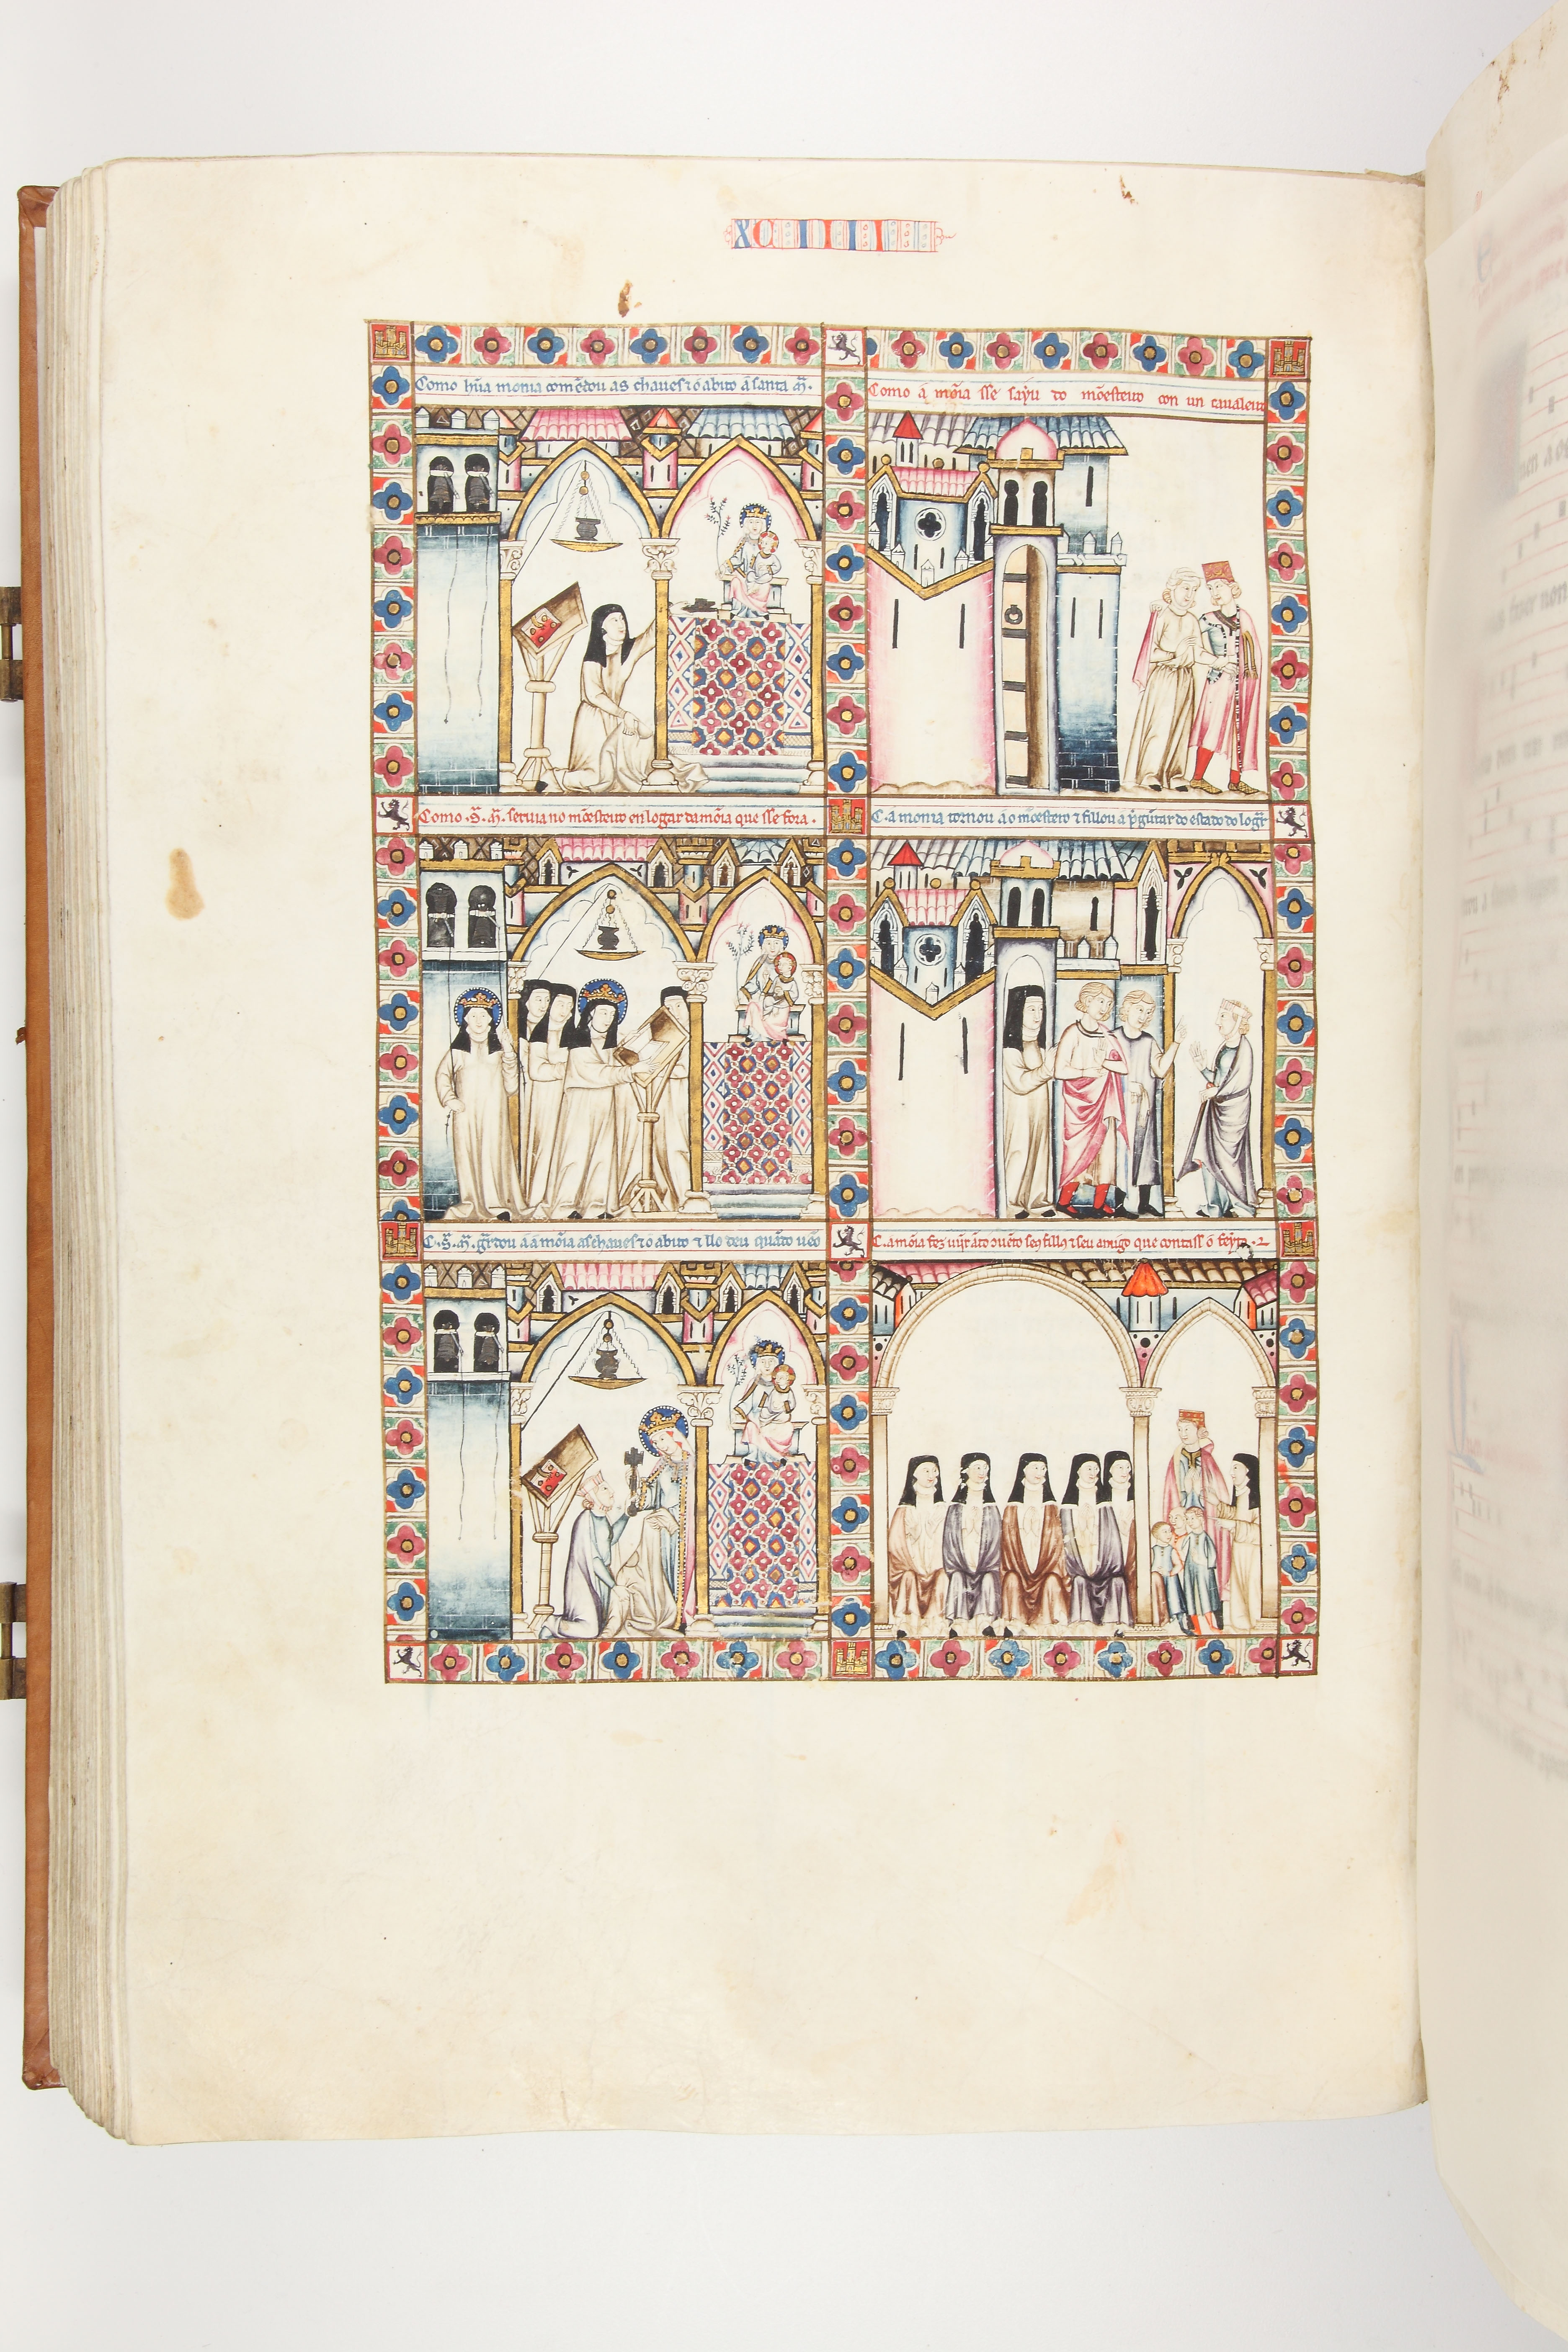 XCIIII
Como hũa monia comẽdou as chaues ⁊ o abito a santa M̃.
Como a mõia sse sayu do mõesteiro con un caualeiro
Como .S̃. M̃. seruia no mõesteiro en logar da mõia que sse fora.
C. a monia tornou ao mõesteiro ⁊ fillou a p̃gũtar do estado do logar
C. .S̃. M̃. g̃rdou áá mõia as chaues ⁊ o abito ⁊ llo deu quãto uẽo
C. a mõia fez uĩjr ãto o cuẽto seꝯ fillꝯ ⁊ seu amigo que contass o feyto.